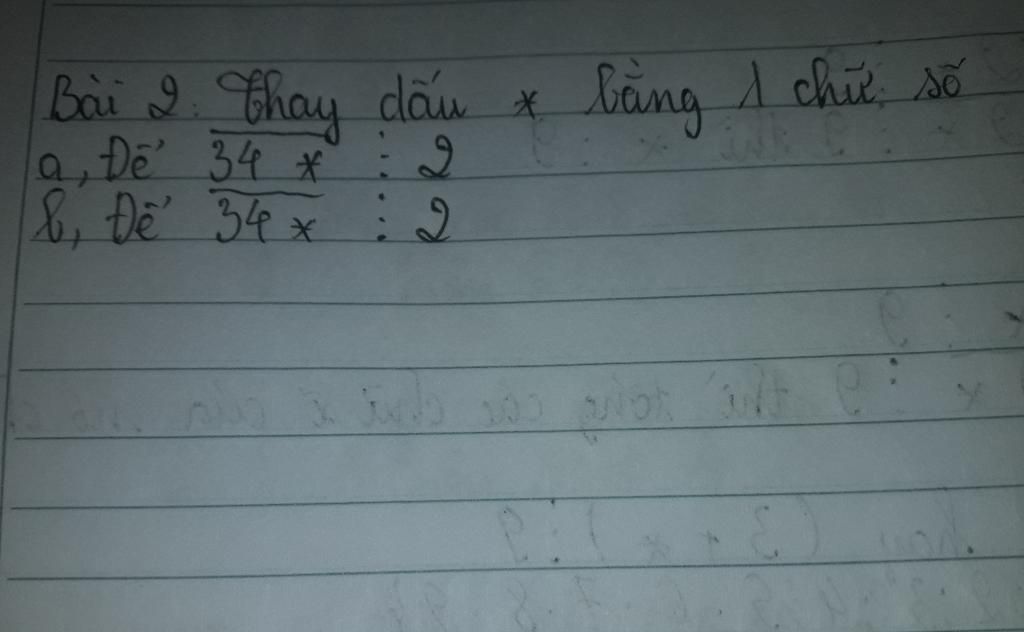 Bài 2: Thay dấu * bằng 1 chữ số
a, Để 34* ⋮ 2
b, Để 34* ⋮ 2